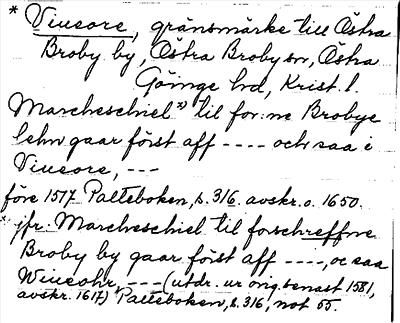 * Viueore, gränsmärke till Östra
Broby by, Östra Broby sn, Östra
Göinge hd, Krist. l.
Marcheschiel *) til for:ne Brobye
lehn gaar först aff ---- och saa i
Viueore, ---
före 1577 Palteboken, s. 316, avskr. o. 1650.
* jfr. Marcheschiel til forschreffne
Broby by gaar först aff ----, oc saa
Wiueohr, --- (utdr. ur orig. senast 1581,
avskr. 1617) Palteboken, s. 316, not 55.